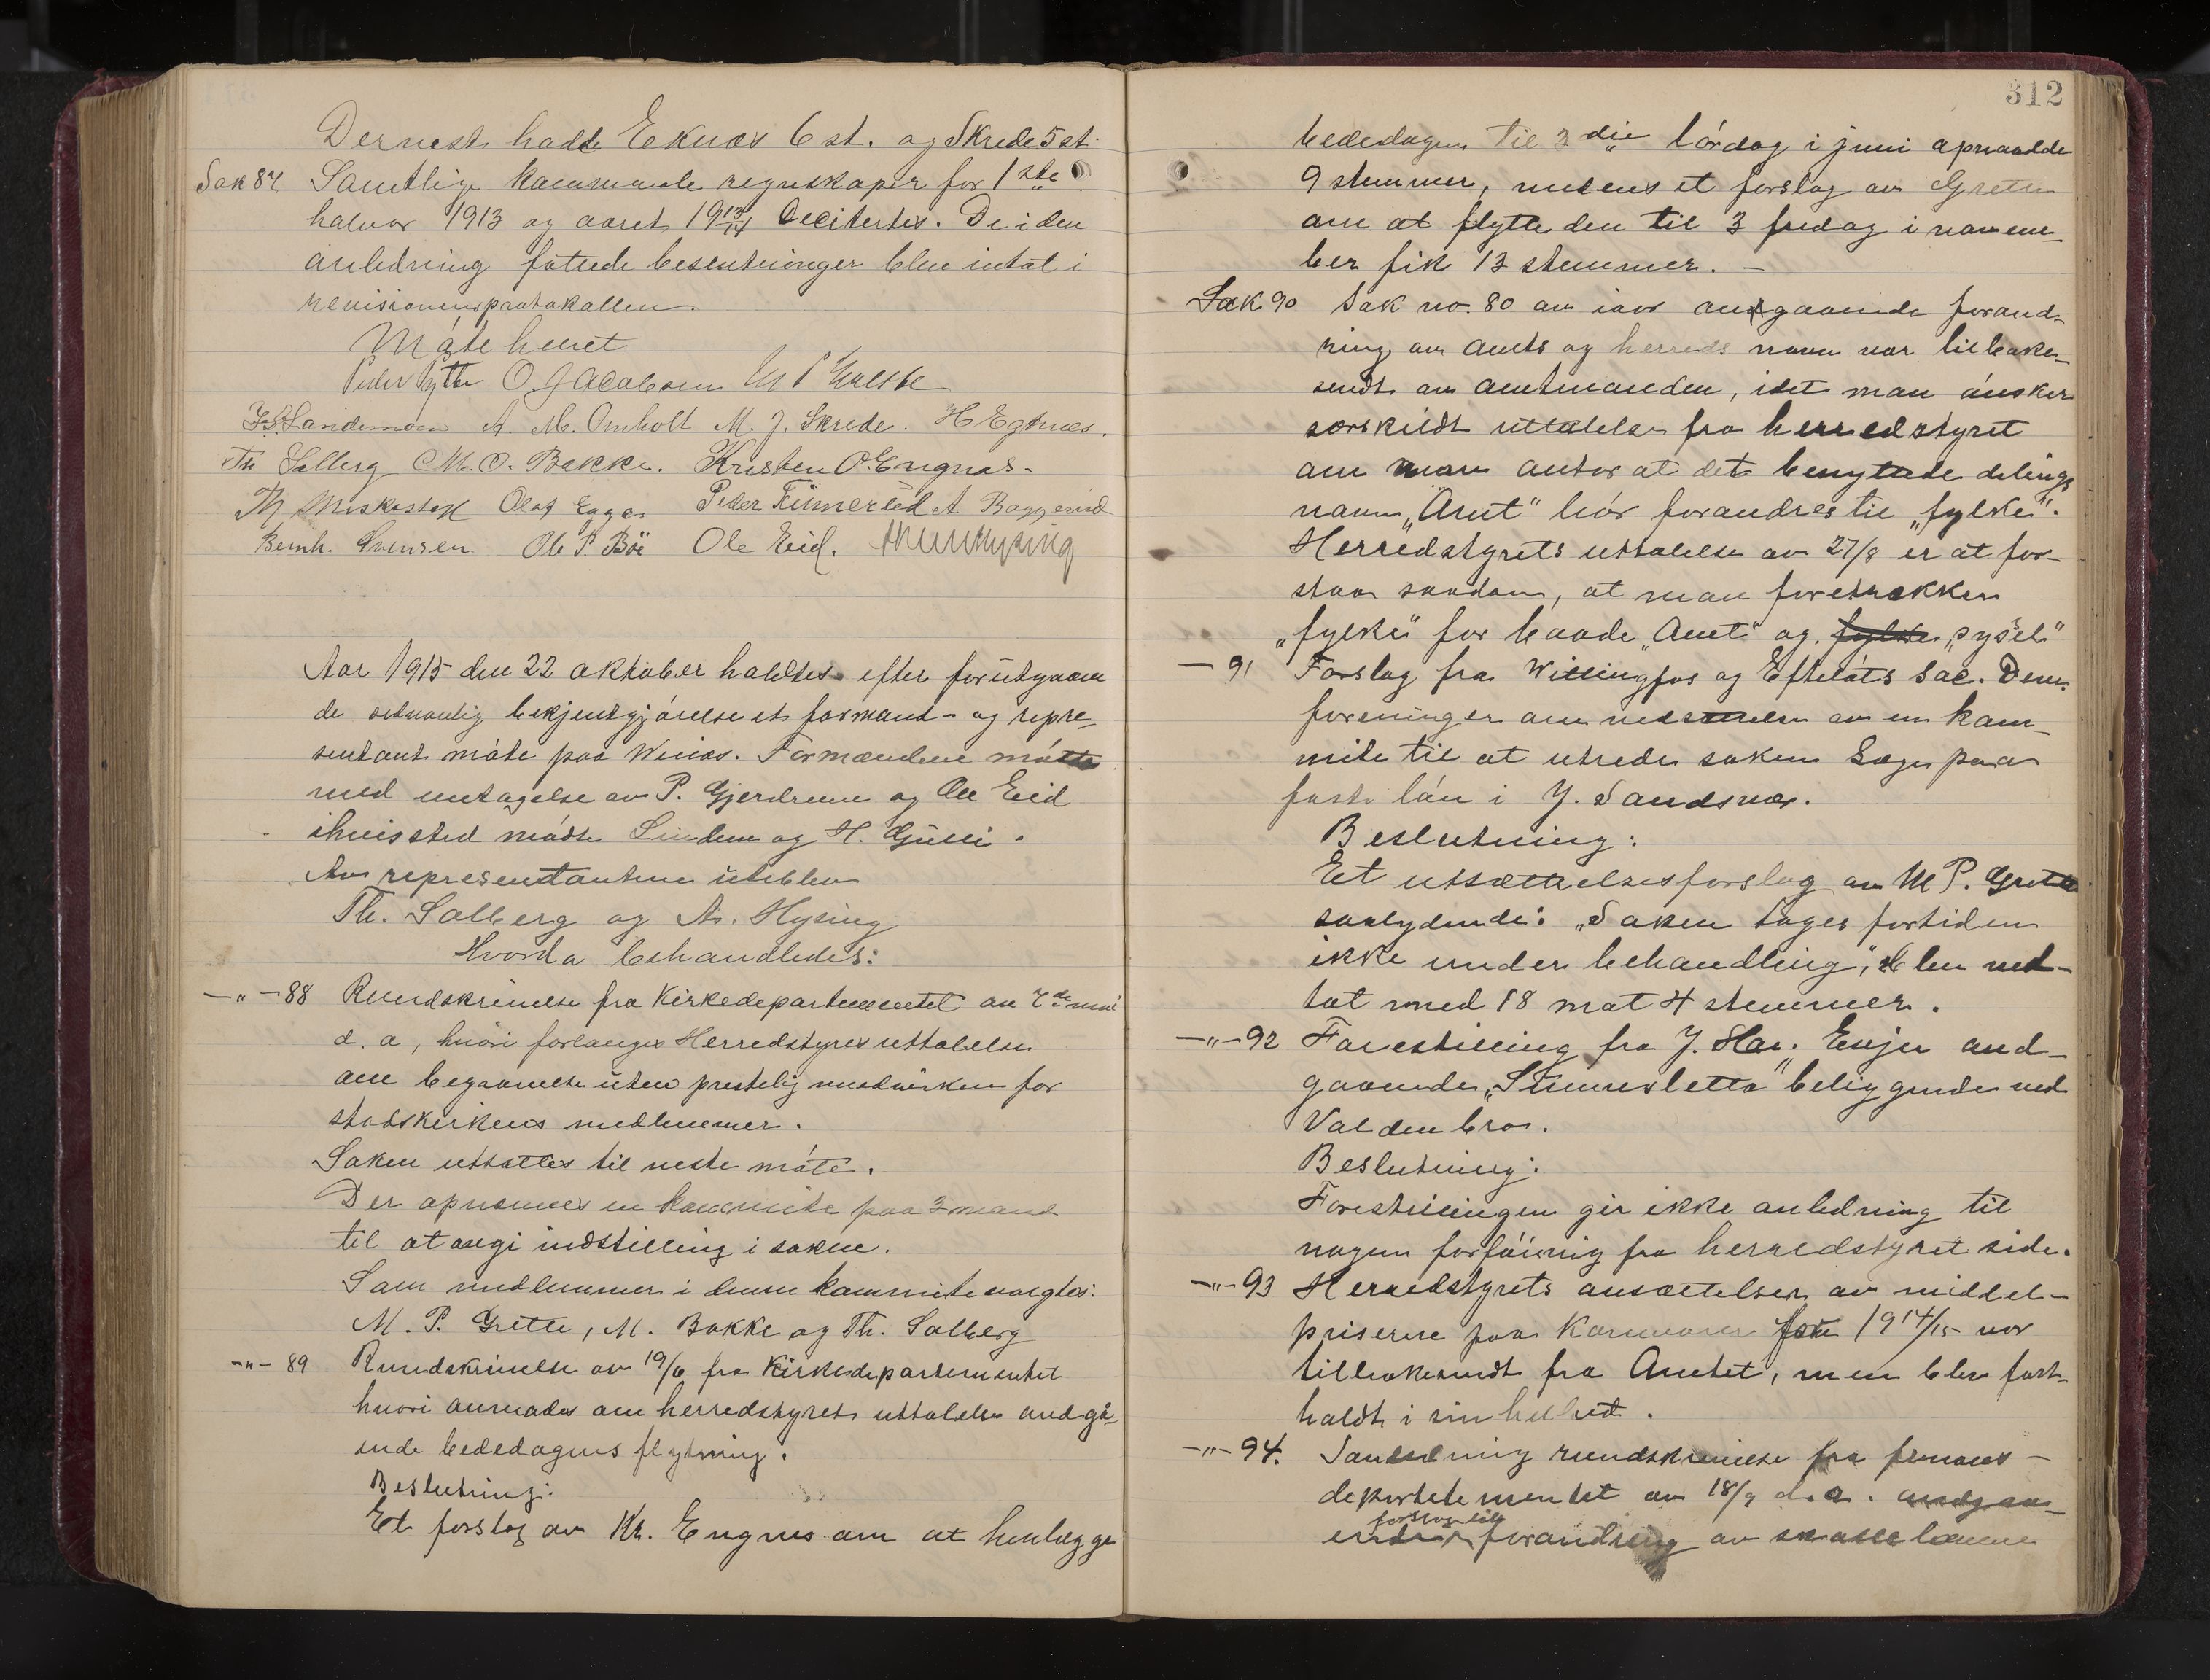 Dernest hadde Eknæs 6 st. og Skrede 5 st.
Sak 87 Samtlige kommunale regnskaper for 1ste
halvaar 1913 og aaret 1913/14 Decitertes. De i den
anledning fattede beslutninger blev intat i
revisionensprotokollen.
Møte hevet
Peder Ytter O. Jacobsen M P Grette
A. M. Omholt M. J. Skrede. H Egnæs.
Th Solberg M. O. Bakke. Kristen O. Engnæs.
Olaf Enger Peder Bøggerud
Bernh. Svensen Ole P. Bøe Ole Eid.
Aar 1915 den 22 oktober holdtes efter forutgaaen
de sedvanlig bekjentgjørelse et formand- og repre
sentant møte paa Winæs. Formændene møtte
med untagelse av P. Gjerdrum og Ole Eid
ihvissted mødte Lindem og H. Gulli.
Av representantene uteblev
Th. Solberg og A. Hysing
Hvorda behandledes:
-"-88 Rundskrivelse fra Kirkedepartementet av mai
d. a, hvori forlanges Herredstyres uttalelse
om begravelse uten prestelig medvirken for
stadskirkens medlemmer.
Saken utsattes til neste møte.
Der opnevnes en kommite paa 3 mand
til at avgi indstilling i saken.
Som medlemmer i denne kommite valgtes:
M. P. Grette, M. Bakke og Th. Solberg
-"-89 Rundskrivelse av 19/6 fra Kirkedepartementet
hvori anmodes om herredstyrets uttalelse andgå
ende bededagens flytning.
Beslutning:
Et forslag av Kr. Engnæs om at henlægge
312
bededagen til 3die lørdag i juni opnaadde
9 stemmer, medens et forslag av Grette
om at flytte den til 3 fredag i novem-
ber fik 13 stemmer. -
Sak 90 Sak no. 80 av iaar angaaende forand-
ring av amts og herreds navn var tilbake-
sendt av amtmanden, idet man ønsker
særskildt uttalelse fra herredstyret
om man antar at det benyttede delings
navn „Amt" bør forandres til „fylke".
Herredstyrets uttalelse av 27/8 er at for-
staa saadan, at man foretrækker
„fylke" for baade „Amt" og fylke „sysel"
- 91 Forslag fra Willingfos og Efteløts Soc. Dem.
foreninger om nedsættelse av en kom-
mite til at utrede saken Sags paa
faste lån i J. Sandsvær.
Beslutning:
Et utsættelsesforslag av M P. Grette
saalydende: „Saken tages fortiden
ikke under behandling", blev ved-
tat med 18 mot 4 stemmer.
-"-92 Forestilling fra J. Har. Enger and-
gaaende „Sumersletta" beliggende ved
Valden bro.
Beslutning:
Forestillingen gir ikke anledning til
nogen forføinig fra herredstyret side.
-"-93 Herredstyrets ansættelser av middel-
priserne paa Kornvarer for 1914/15 var
tilbakesendt fra Amtet, men blev fast-
holdt i sin helhed.
-"-94. rundskrivelse fra finans-
departetementet av 18/9 d. a. andgaa-
ende forslag til forandring av skatte lovene